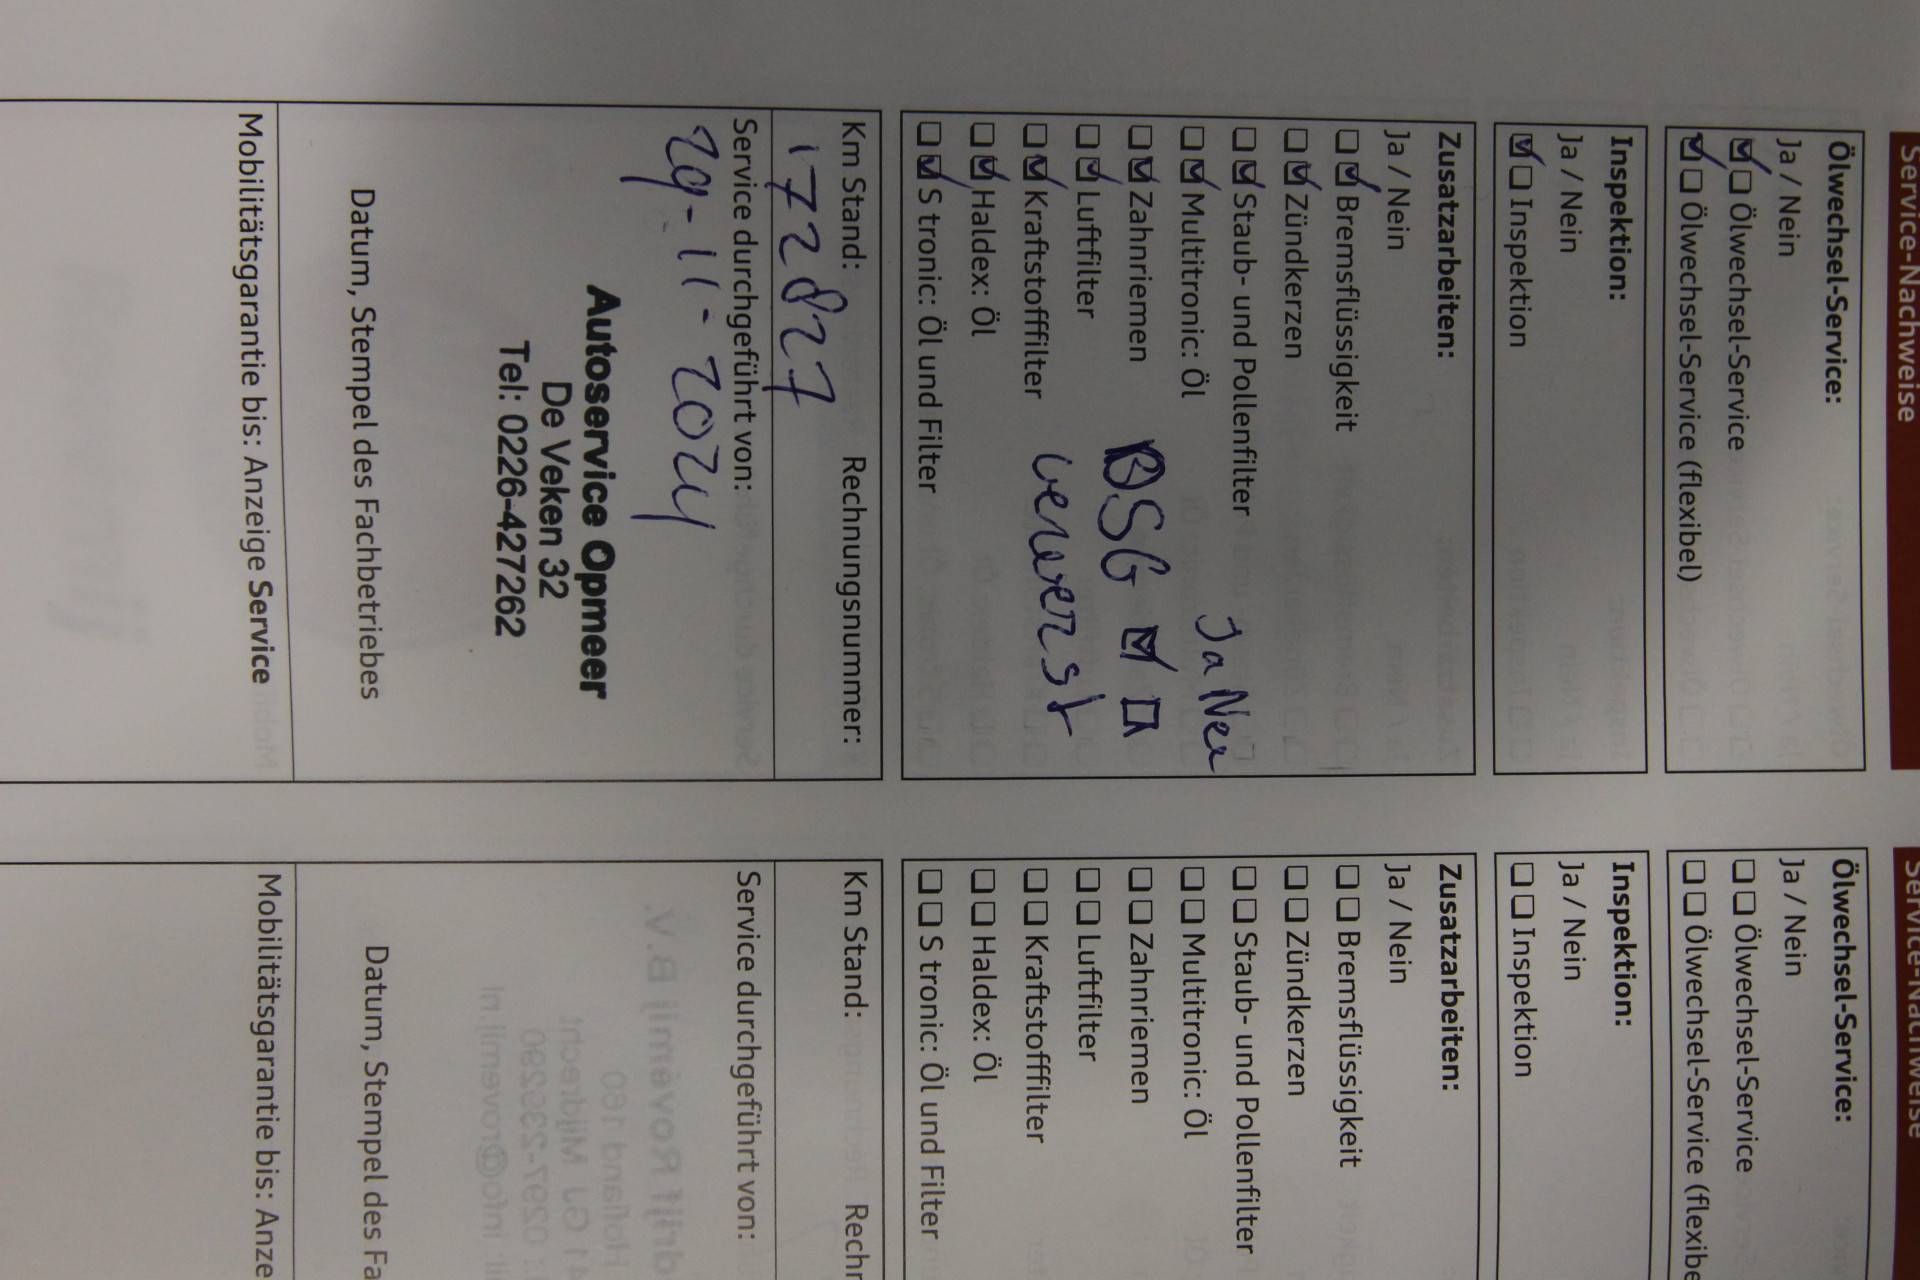 Service-Nachweise
Ölwechsel-Service:
Ja / Nein
☑☐ Ölwechsel-Service
☑☐ Ölwechsel-Service (flexibel)
Inspektion:
Ja / Nein
☑☐ Inspektion
Zusatzarbeiten:
Ja / Nein
☐☑ Bremsflüssigkeit
☐☑ Zündkerzen
☐☑ Staub- und Pollenfilter
☐☑ Multitronic: Öl
Ja Nei
☐☑ Zahnriemen
DSG ☑ ☐
☐☑ Luftfilter
☐☑ Kraftstofffilter
ververst
☐☑ Haldex: Öl
☐☑ S tronic: Öl und Filter
Km Stand: Rechnungsnummer:
172827
Service durchgeführt von:
29-11-2024
Autoservice Opmeer
De Veken 32
Tel: 0226-427262
Datum, Stempel des Fachbetriebes
Mobilitätsgarantie bis: Anzeige Service
Service-Nachweise
Ölwechsel-Service:
Ja / Nein
☐☐ Ölwechsel-Service
☐☐ Ölwechsel-Service (flexibe
Inspektion:
Ja / Nein
☐☐ Inspektion
Zusatzarbeiten:
Ja / Nein
☐☐ Bremsflüssigkeit
☐☐ Zündkerzen
☐☐ Staub- und Pollenfilter
☐☐ Multitronic: Öl
☐☐ Zahnriemen
☐☐ Luftfilter
☐☐ Kraftstofffilter
☐☐ Haldex: Öl
☐☐ S tronic: Öl und Filter
Km Stand: Rechn
Service durchgeführt von:
Datum, Stempel des Fa
Mobilitätsgarantie bis: Anze